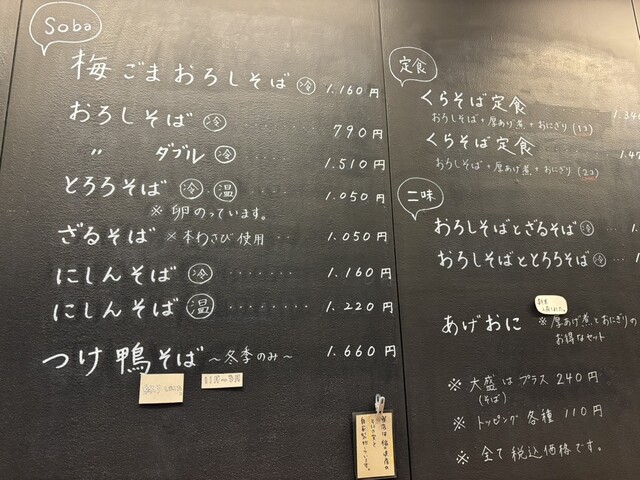 Soba
梅ごまおろしそば 冷 1.160円
おろしそば 冷 790円
〃 ダブル 冷 1.510円
とろろそば 冷・温 ...... 1.050円
※卵のっています。
ざるそば ※本わさび使用 .. 1.050円
にしんそば 冷 ........ 1.160円
にしんそば 温 ......... 1.220円
つけ鴨そば 〜冬季のみ〜 1.660円
定食
くらそば定食
おろしそば+厚あげ煮+おにぎり(1コ)
くらそば定食
おろしそば+厚あげ煮+おにぎり(2コ)
二味
おろしそばとざるそば 冷
おろしそばととろろそば 冷
あげおに ※厚あげ煮とおにぎりの
お得なセット
※大盛はプラス240円
(そば)
※トッピング各種 110円
※全て税込価格です。